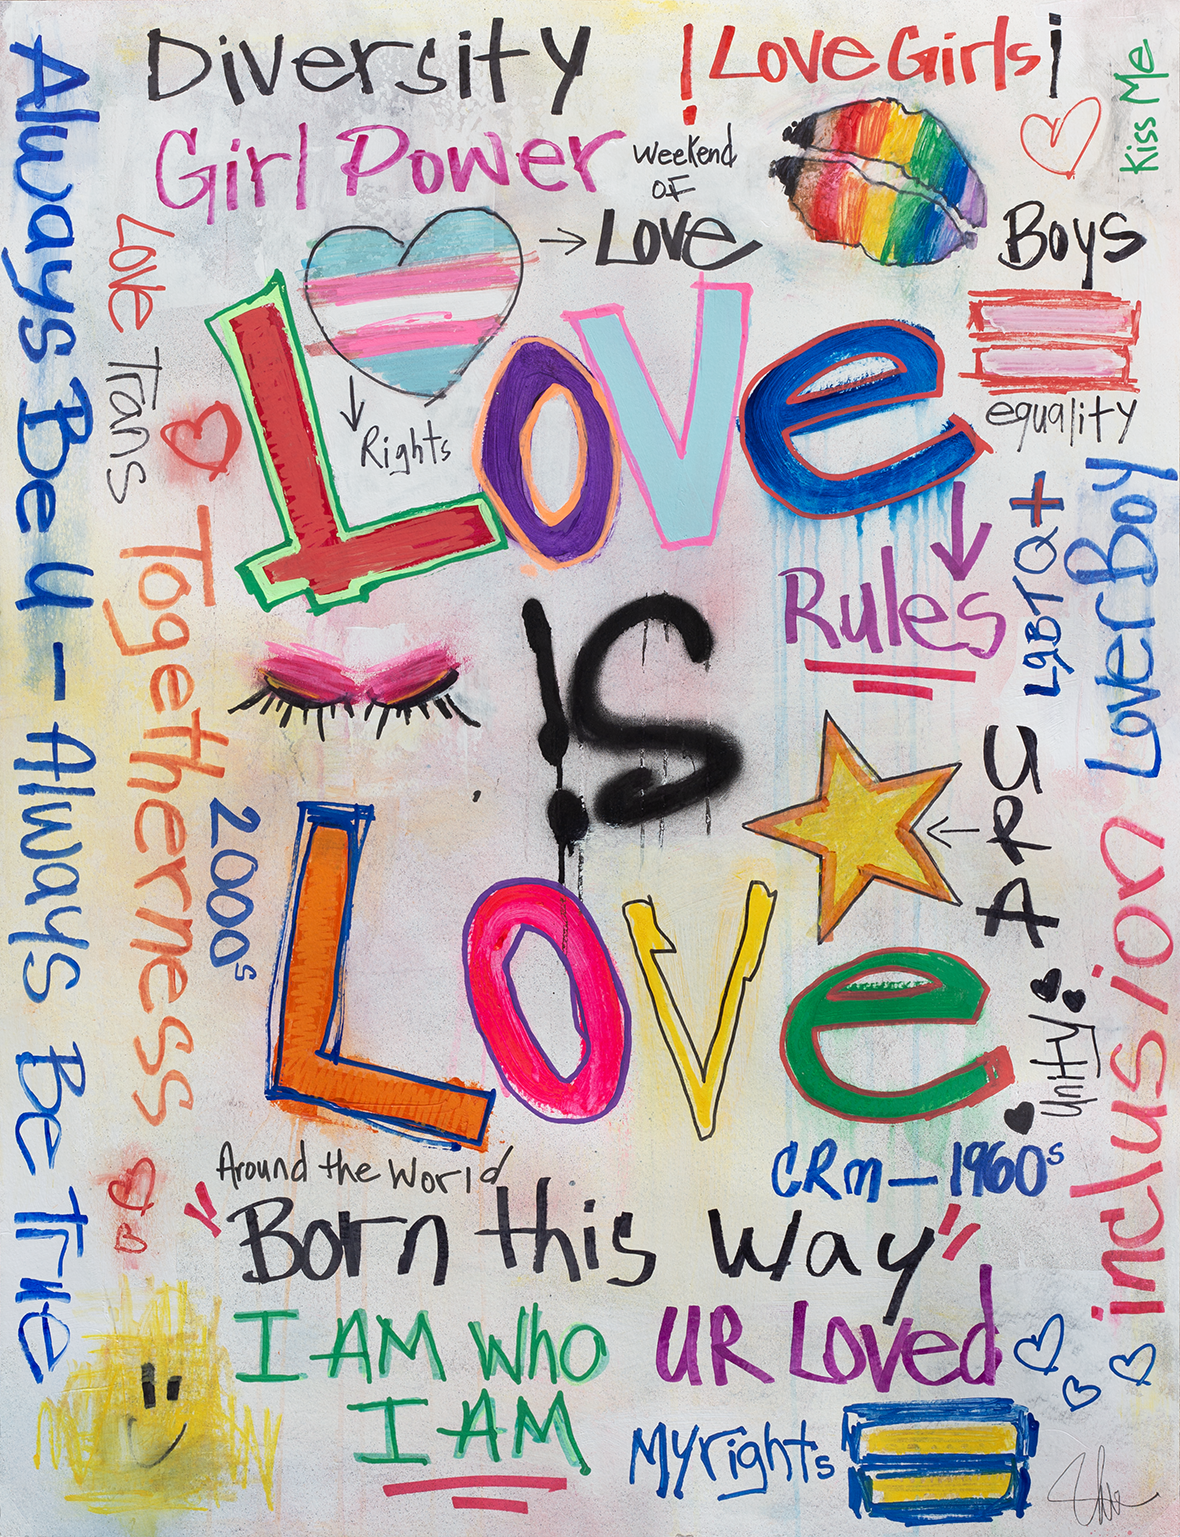 Diversity
! Love Girls i
Kiss Me
Girl Power
Weekend
OF
Love
Boys
Always Be U - Always Be True
Love Trans
Love
Rights
equality
Togetherness
Rules
LgBTQ+
Lover Boy
IS
2000s
ARU
Love
Unity
inclusion
Around the World
CRM-1960s
"Born this Way"
I AM Who
I AM
UR Loved
My rights